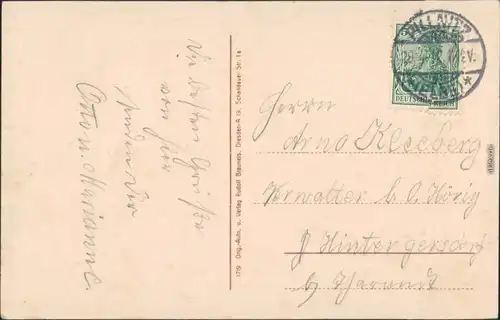 Die besten Grüße
von hier
senden Dir
Otto u. Marianne.
1759 Orig.-Aufn. u. Verlag Rudolf Brauneis, Dresden-A. 19, Schandauer Str. 1a
PILLNITZ
DEUTSCHES REICH
Herrn
Arno Kleeberg
Verwalter b. O. Hönig
Hintergersdorf
b/ Tharandt